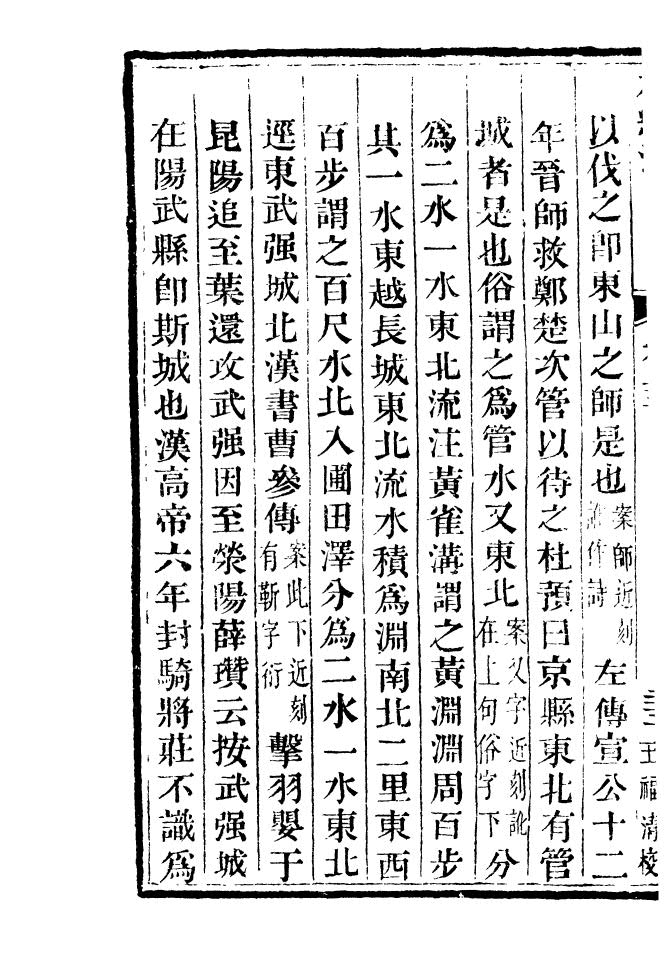 以伐之卽東山之師是也案師近刻訛作詩左傳宣公十二
年晉師救鄭楚次管以待之杜預曰京縣東北有管
城者是也俗謂之爲管水又東北案又字近刻訛在上句俗字下分
爲二水一水東北流注黃雀溝謂之黃淵淵周百步
其一水東越長城東北流水積爲淵南北二里東西
百步謂之百尺水北入圃田澤分爲二水一水東北
逕東武强城北漢書曹參傳案此下近刻有靳字衍擊羽嬰于
昆陽追至葉還攻武强因至滎陽薛瓚云按武强城
在陽武縣卽斯城也漢高帝六年封騎將莊不識爲
王福清校